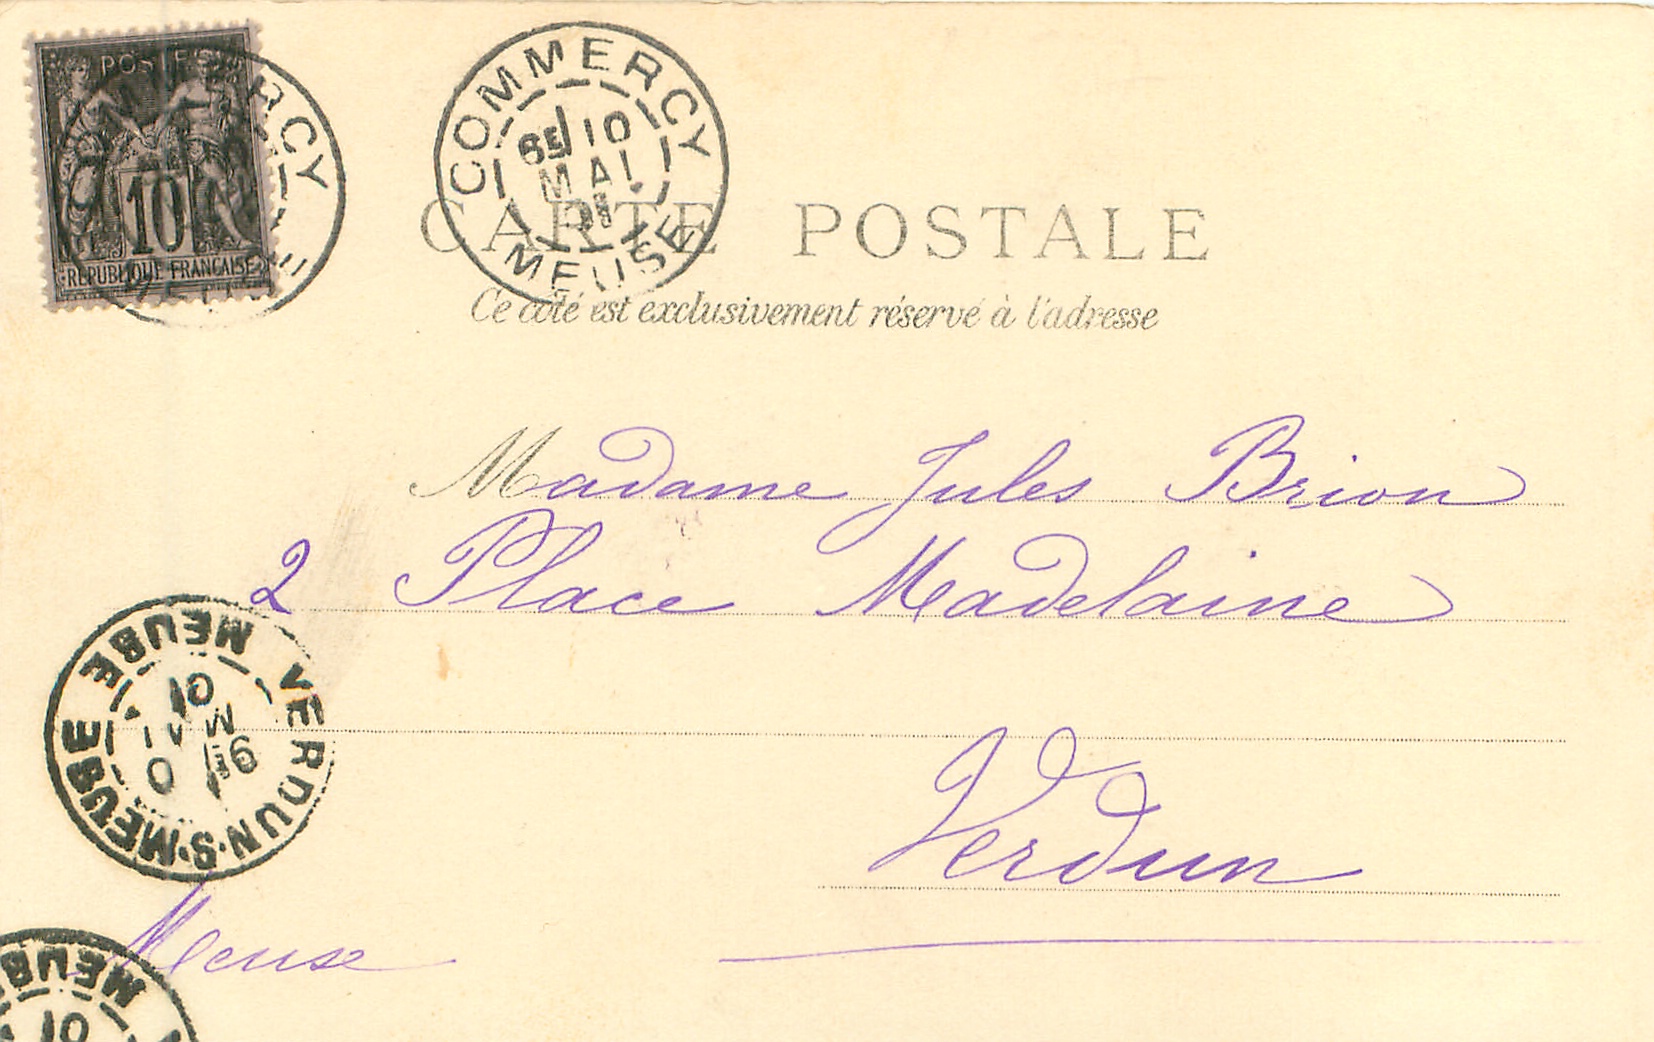 POSTES
10
REPUBLIQUE FRANÇAISE
COMMERCY
10
MAI
MEUSE
CARTE POSTALE
Ce côté est exclusivement réservé à l'adresse
Madame Jules Brion
2 Place Madelaine
Verdun
Meuse
VERDUN-S-MEUSE
MEUSE
MAI
01
MEUSE
01